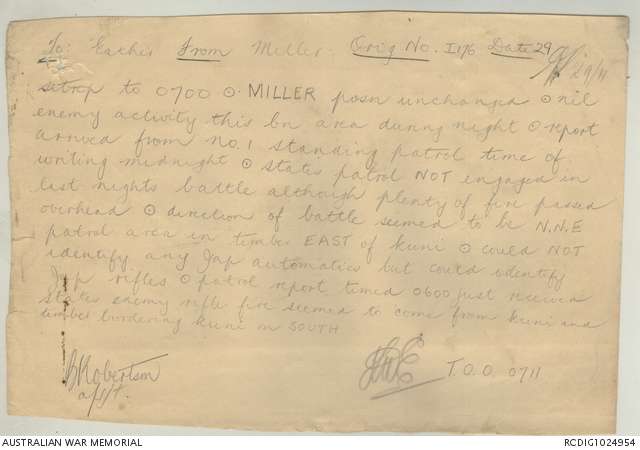 To: Eather From Miller Orig No. I176 Date 29
29/11
sitrep to 0700 ⊙ MILLER posn unchanged ⊙ nil
enemy activity this bn area during night ⊙ report
arrived from no. 1 standing patrol time of
writing midnight ⊙ states patrol NOT engaged in
last nights battle although plenty of fire passed
overhead ⊙ direction of battle seemed to be N.N.E
patrol area in timber EAST of kuni ⊙ could NOT
identify any Jap automatics but could identify
Jap rifles ⊙ patrol report timed 0600 just received
states enemy rifle fire seemed to come from kuni and
timber bordering kuni on SOUTH
B Robertson
T.O.O. 0711
a/sjt.
AUSTRALIAN WAR MEMORIAL
RCDIG1024954